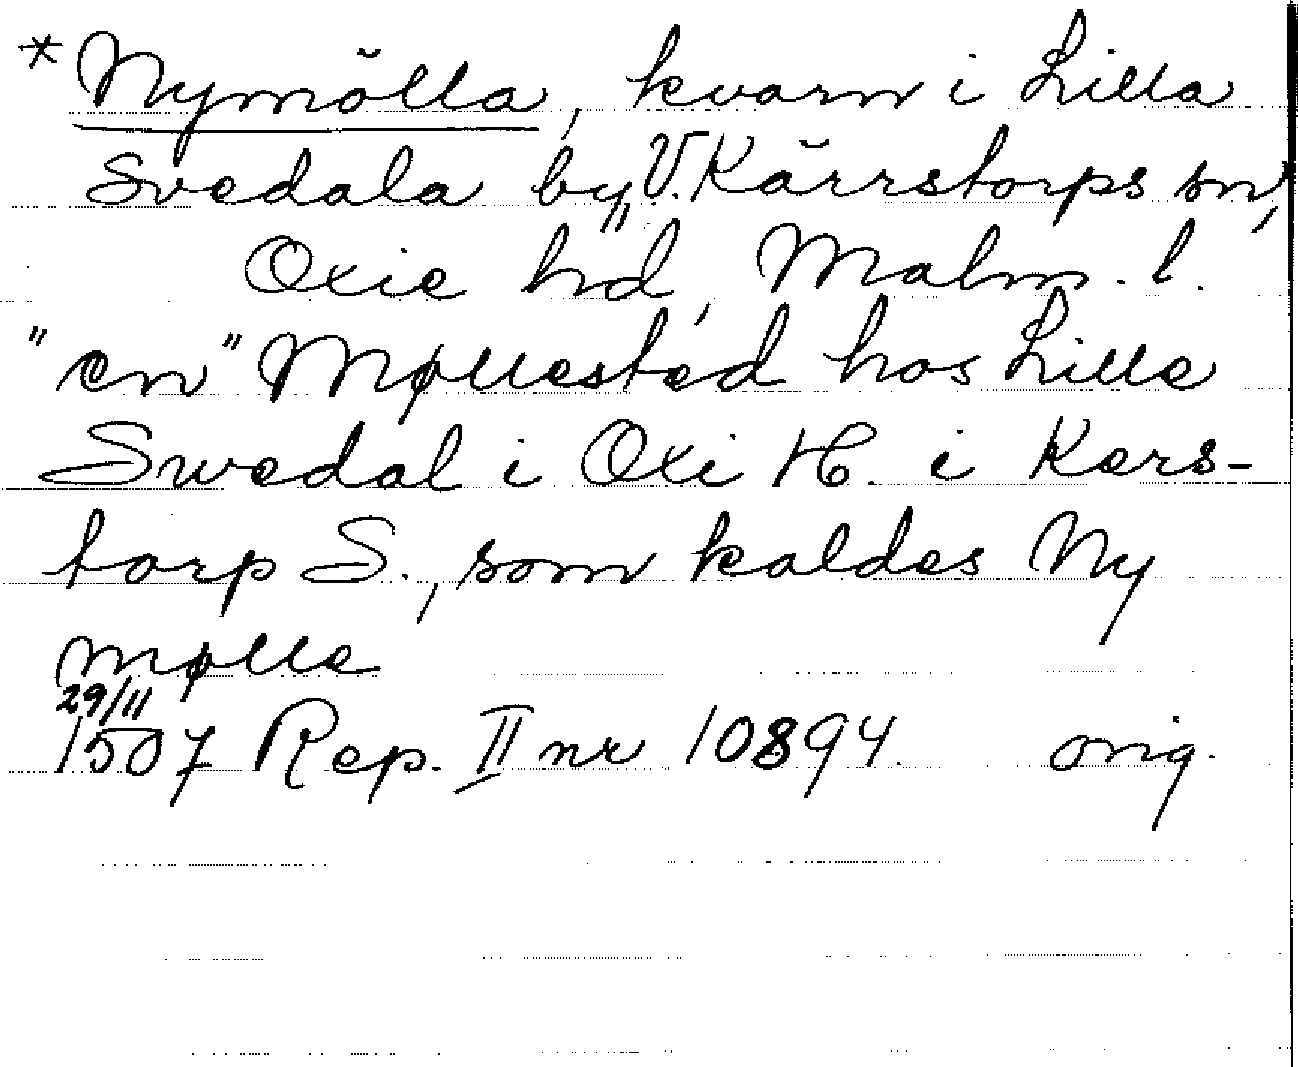 *Nymölla, kvarn i Lilla
Svedala by, V. Kärrstorps sn,
Oxie hd, Malm. l.
"en" Møllested hos Lille
Swedal i Oxi H. i Kers-
torp S., som kaldes Ny
mølle
29/11
1507 Rep. II nr 10894. orig.